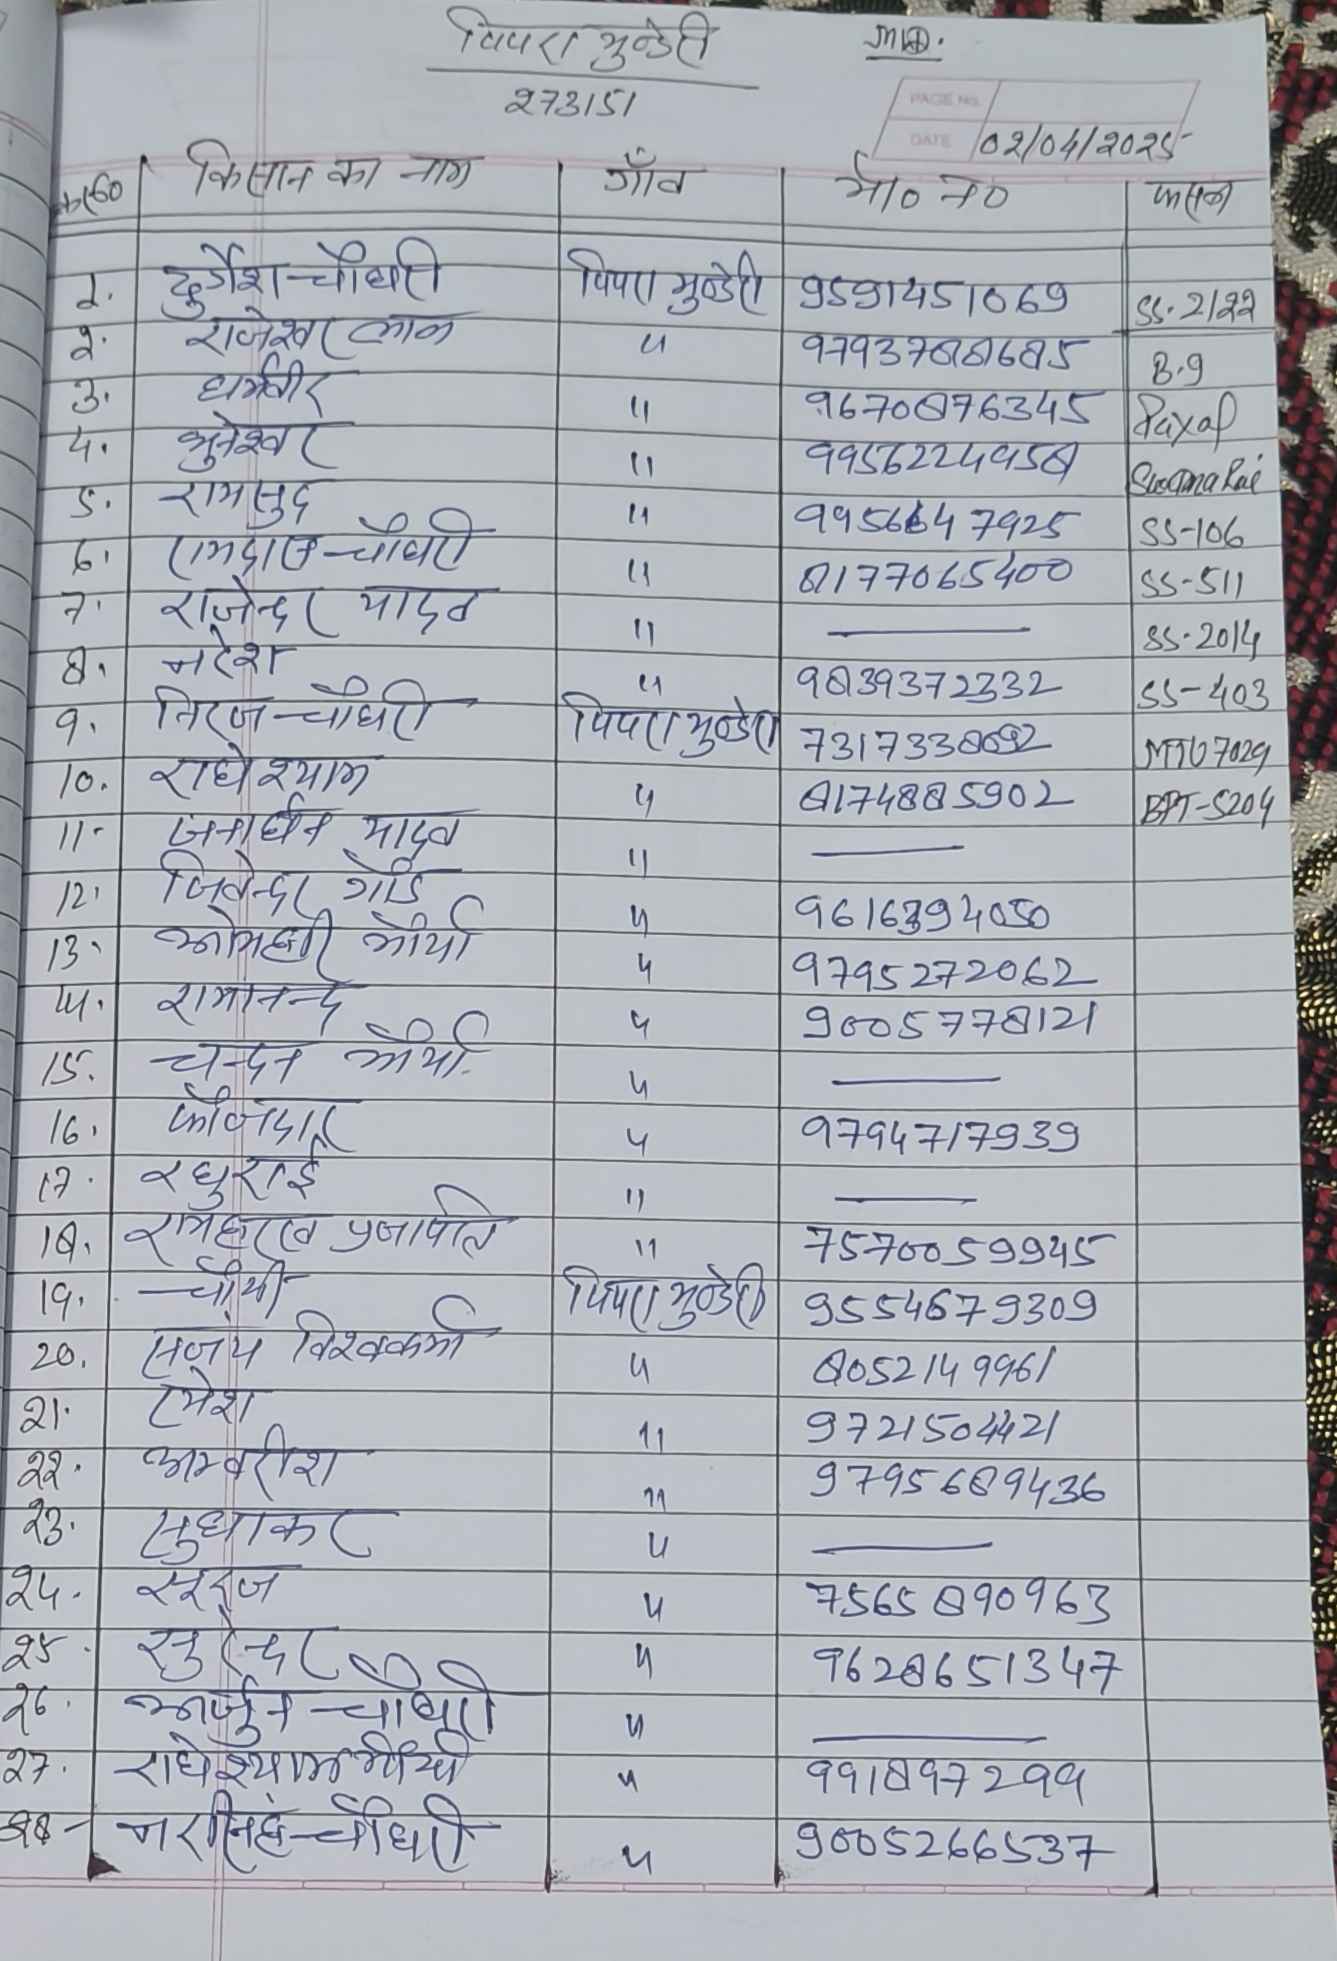 पिपरा मुन्डेरी
273151
PAGE NO.
DATE 02/04/2025
क्र०सं० किसान का नाम गाँव मो० न० फसल
1. दुर्गेश चौधरी पिपरा मुन्डेरी 9591451069 SS-2122
2. राजेश्वर लाल " 9793788685 B.9
3. धर्मवीर " 9670876345
4. मुनेश्वर " 9956224958
5. रामसुद " 9956647925 SS-106
6. रामदास चौधरी " 8177065400 SS-511
7. राजेन्द्र यादव " — SS-2014
8. नरेश " 9839372332 SS-403
9. निरज चौधरी पिपरा मुन्डेरी 7317338692 MTU 7029
10. राधेश्याम " 8174885902 BPT-5204
11. जनार्धन यादव " —
12. जितेन्द्र गौड़ " 9616394050
13. मौर्या " 9795272062
14. रामानन्द " 9005778121
15. चन्दन मौर्या " —
16. फौजदार " 9794717939
17. रघुराई " —
18. प्रजापति " 7570059945
19. चौथी पिपरा मुन्डेरी 9554679309
20. संजय विश्वकर्मा " 8052149961
21. रमेश " 9721504421
22. अम्बरीश " 9795689436
23. सुधाकर " —
24. सूरज " 7565890963
25. सुरेन्द्र " 9628651347
26. अर्जुन चौधरी " —
27. राधेश्याम मौर्या " 991897299
28 नरसिंह चौधरी " 9005266537